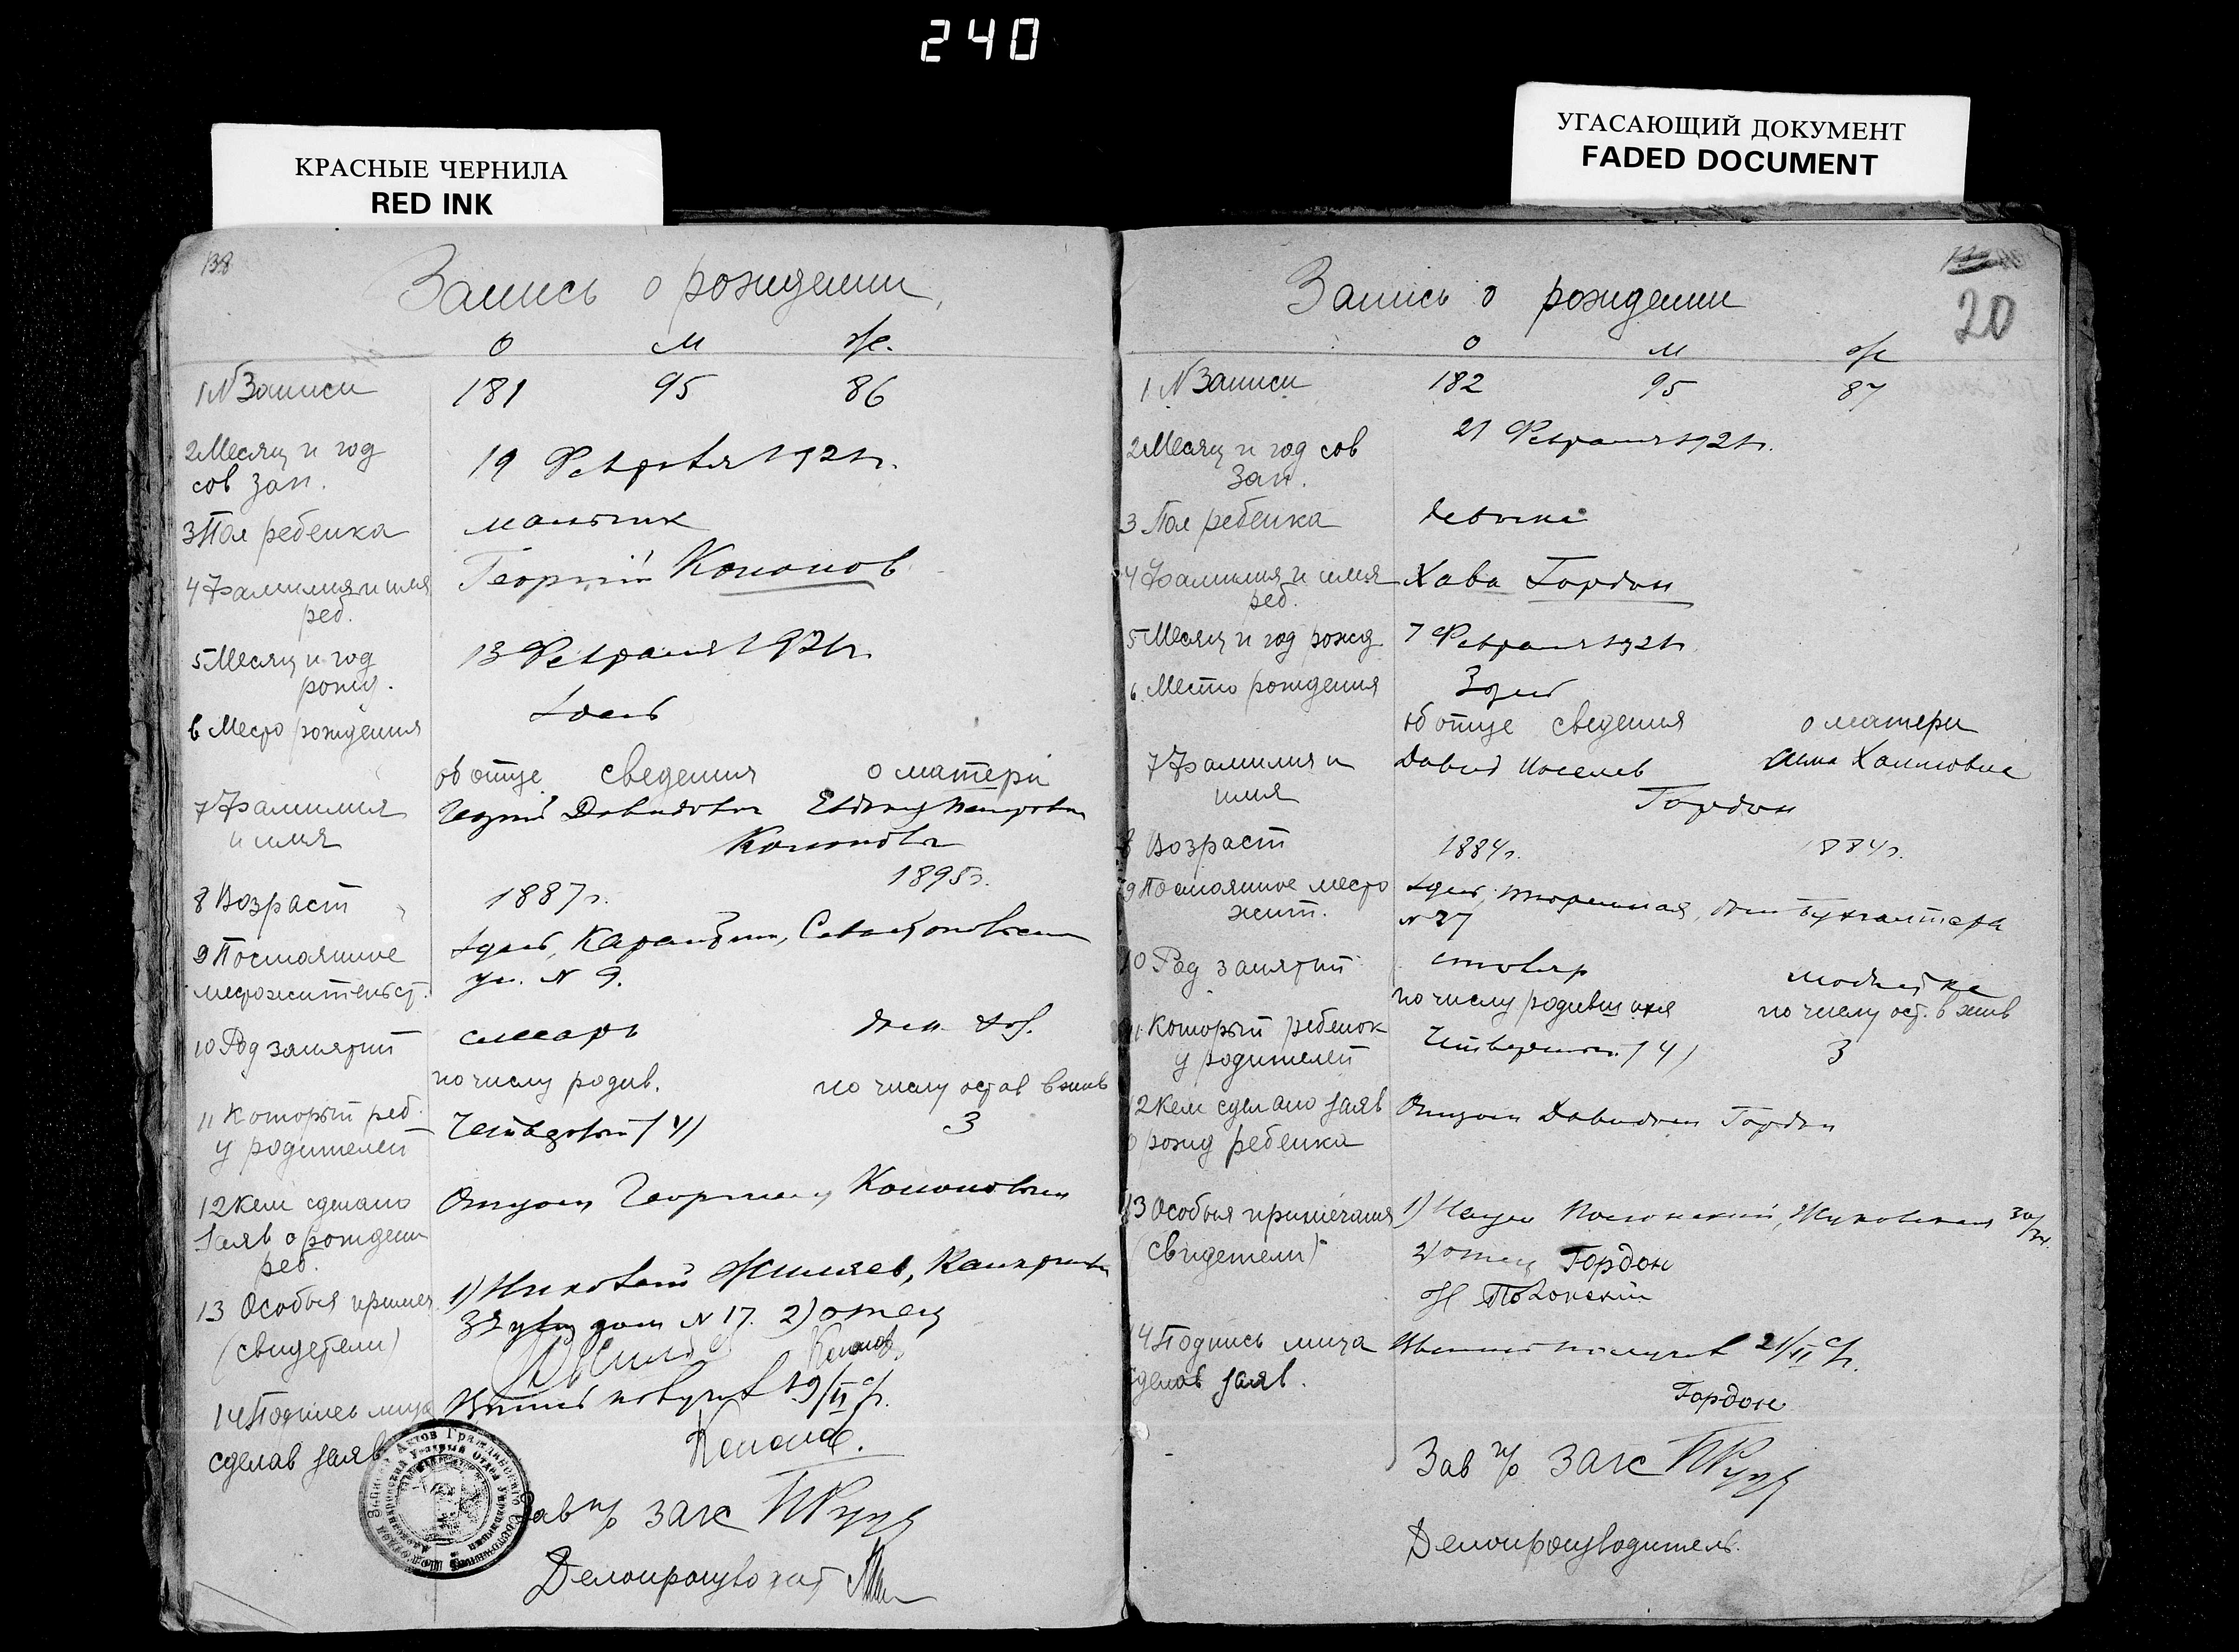 240
КРАСНЫЕ ЧЕРНИЛА
RED INK
УГАСАЮЩИЙ ДОКУМЕНТ
FADED DOCUMENT
138
Запись о рождении
О М Ж.
1 N Записи 181 95 86
2 Месяц и год 19 Февраля 1921 г.
сов зап.
3 Пол ребенка мальчик
4 Фамилия и имя Георгий Кононов
реб.
5 Месяц и год 13 Февраля 1921 г.
рожд.
6 Место рождения здесь
об отце сведения о матери
7 Фамилия Георгий Давидович
и имя Кононовы
8 Возраст 1887 г. 1895 г.
9 Постоянное здесь,
местожительст. ул. N 9.
10 Род занятий слесарь дом. хоз.
по числу родив. по числу остав в жив
11 Который реб. Четвертый (4) 3
у родителей
12 Кем сделано Отцом Георгием Кононовым
заяв о рождении
реб.
13 Особыя примеч 1)
(свидетели) дом N 17. 2) отец
Кононов
14 Подпись лица получил 19/II с/г.
сделав заяв Кононов.
Зав п/о загс
Делопроизводит
20
Запись о рождении
О М Ж
1 N Записи 182 95 87
2 Месяц и год сов 21 Февраля 1921 г.
зап.
3 Пол ребенка девочка
4 Фамилия и имя Хава Гордон
реб.
5 Месяц и год рожд 7 Февраля 1921 г.
6 Место рождения здесь
об отце сведения о матери
7 Фамилия и Давид
имя Гордон
8 Возраст 1884 г. 1884 г.
9 Постоянное место здесь, дом Бухгалтера
жит. N 27
10 Род занятий столяр
по числу родившихся по числу ост. в жив
11 Который ребенок Четвертый (4) 3
у родителей
12 Кем сделано заяв Отцом Давидом Гордон
о рожд ребенка
13 Особыя примечания 1)
(свидетели) 2) отец Гордон
14 Подпись лица получил 21/II с/г.
сделав заяв. Гордон
Зав п/о загс
Делопроизводитель.